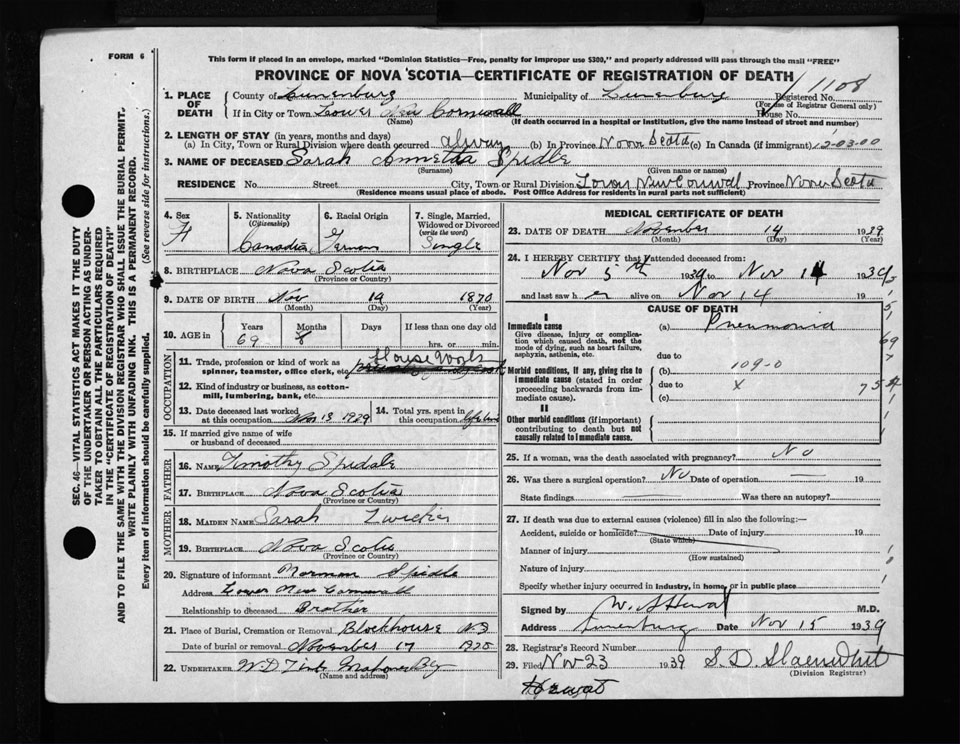 FORM 6
This form if placed in an envelope, marked "Dominion Statistics—Free, penalty for improper use $300," and properly addressed will pass through the mail "FREE"
PROVINCE OF NOVA SCOTIA—CERTIFICATE OF REGISTRATION OF DEATH
1108
1. PLACE OF DEATH County of Lunenburg Municipality of Lunenburg Registered No.
(For use of Registrar General only)
If in City or Town Lower New Cornwall House No.
(Name) (If death occurred in a hospital or institution, give the name instead of street and number)
2. LENGTH OF STAY (in years, months and days)
(a) In City, Town or Rural Division where death occurred always (b) In Province Nova Scotia (c) In Canada (if immigrant) 12-03-00
3. NAME OF DECEASED Sarah Annetta Spidle
(Surname) (Given name or names)
RESIDENCE No. Street City, Town or Rural Division Lower New Cornwall Province Nova Scotia
(Residence means usual place of abode. Post Office Address for residents in rural parts not sufficient)
4. Sex F
5. Nationality (Citizenship) Canadian
6. Racial Origin German
7. Single, Married, Widowed or Divorced (write the word) Single
8. BIRTHPLACE Nova Scotia
(Province or Country)
9. DATE OF BIRTH Nov 19 1870
(Month) (Day) (Year)
10. AGE in Years Months Days If less than one day old
69 hrs. or min.
OCCUPATION
11. Trade, profession or kind of work as spinner, teamster, office clerk, etc. House Work
12. Kind of industry or business, as cotton-mill, lumbering, bank, etc.
13. Date deceased last worked at this occupation Nov 13 1929
14. Total yrs. spent in this occupation
15. If married give name of wife or husband of deceased
FATHER
16. NAME Timothy Spidale
17. BIRTHPLACE Nova Scotia
(Province or Country)
MOTHER
18. MAIDEN NAME Sarah Zwicker
19. BIRTHPLACE Nova Scotia
(Province or Country)
20. Signature of informant Norman Spidle
Address Lower New Cornwall
Relationship to deceased Brother
21. Place of Burial, Cremation or Removal Blockhouse NS
Date of burial or removal November 17
22. UNDERTAKER
(Name and address)
MEDICAL CERTIFICATE OF DEATH
23. DATE OF DEATH November 14 1939
(Month) (Day)
24. I HEREBY CERTIFY that I attended deceased from:
Nov 5th 1939 to Nov 14 1939
and last saw her alive on Nov 14 19
CAUSE OF DEATH
I
Immediate cause (a) Pneumonia
Give disease, injury or complication which caused death, not the mode of dying, such as heart failure, asphyxia, asthenia, etc.
due to
Morbid conditions, if any, giving rise to immediate cause (stated in order proceeding backwards from immediate cause).
(b) 109-0
due to X
(c)
II
Other morbid conditions (if important) contributing to death but not causally related to immediate cause.
25. If a woman, was the death associated with pregnancy? No
26. Was there a surgical operation? No Date of operation 19
State findings Was there an autopsy?
27. If death was due to external causes (violence) fill in also the following:—
Accident, suicide or homicide? Date of injury 19
(State which)
Manner of injury
(How sustained)
Nature of injury
Specify whether injury occurred in industry, in home, or in public place
Signed by M.D.
Address Lunenburg Date Nov 15 1939
28. Registrar's Record Number
29. Filed Nov 23 1939 S. D. Slaenwhit
(Division Registrar)
SEC. 46—VITAL STATISTICS ACT MAKES IT THE DUTY OF THE UNDERTAKER OR PERSON ACTING AS UNDERTAKER TO OBTAIN ALL THE PARTICULARS REQUIRED IN THE "CERTIFICATE OF REGISTRATION OF DEATH"
AND TO FILE THE SAME WITH THE DIVISION REGISTRAR WHO SHALL ISSUE THE BURIAL PERMIT.
WRITE PLAINLY WITH UNFADING INK. THIS IS A PERMANENT RECORD.
Every item of information should be carefully supplied. (See reverse side for instructions.)